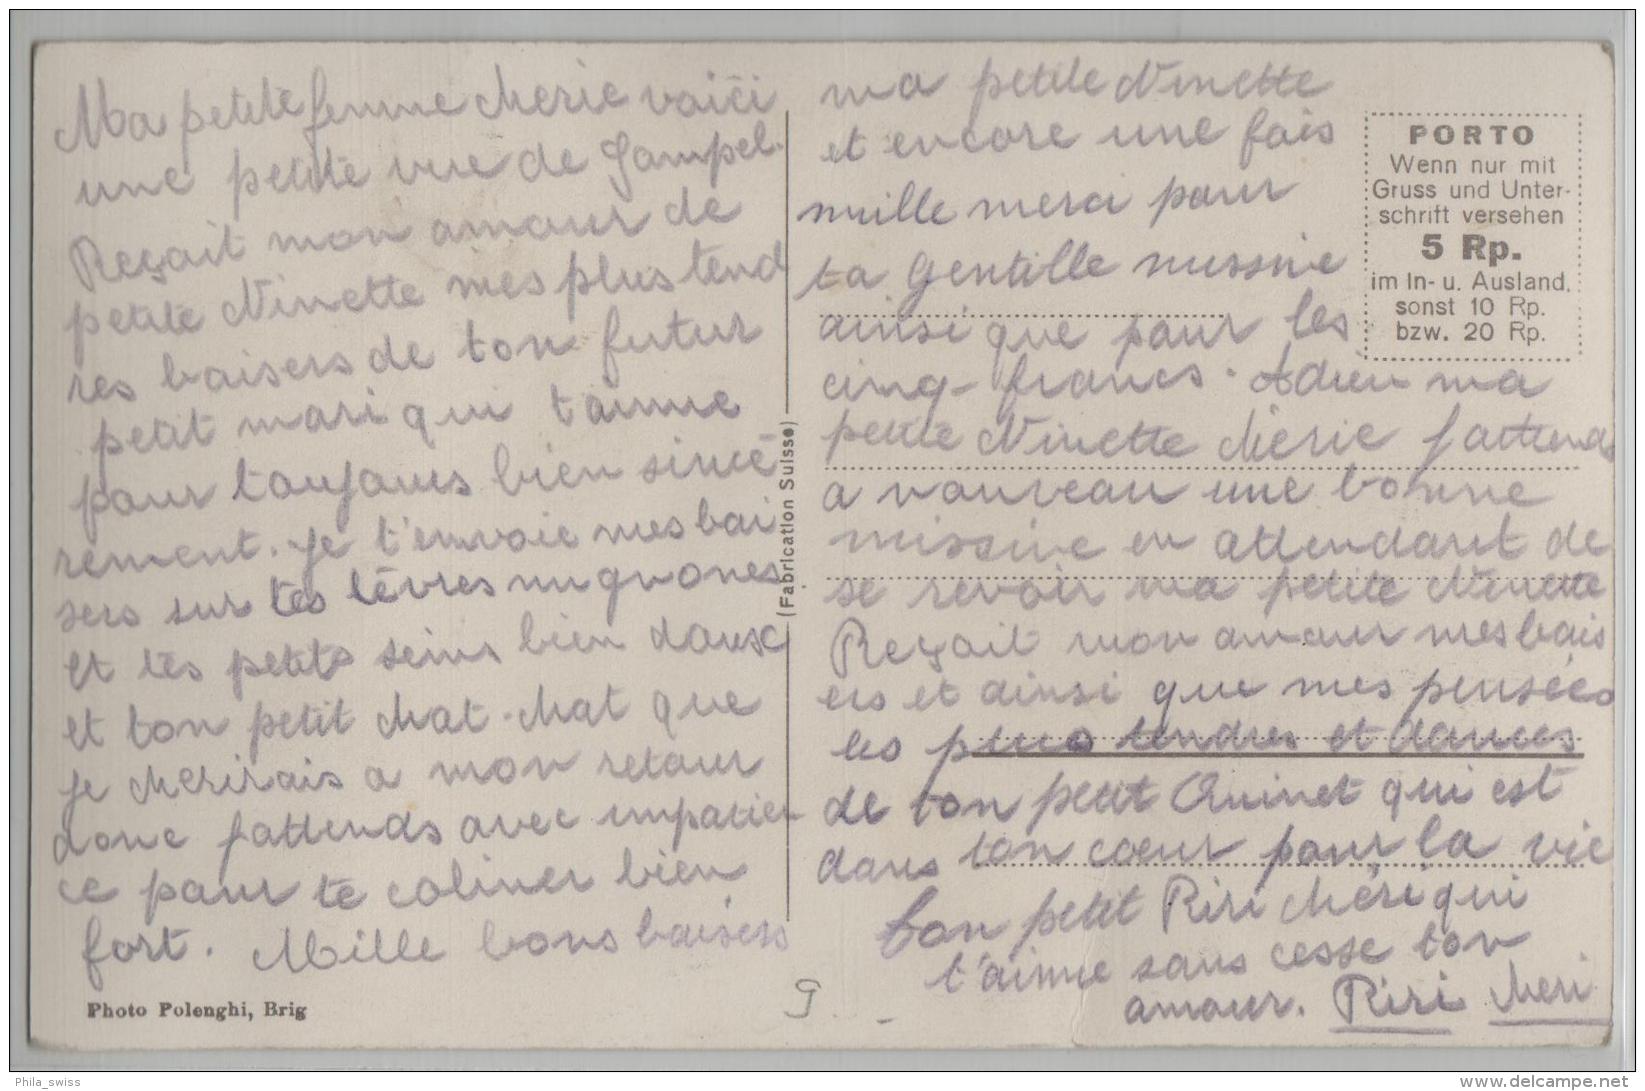 Ma petite femme cherie voici
une petite vue de Gampel.
Reçait mon amour de
petite Ninette mes plus tend
res baisers de ton futur
petit mari qui t'aime
pour toujours bien sincé
rement. Je t'envoie mes bai
sers sur tes lèvres mignones
et tes petits seins bien doux
et ton petit chat-chat que
je cherirais a mon retour
donc j'attends avec impatien
ce pour te caliner bien
fort. Mille bons baisers
Photo Polenghi, Brig
(Fabrication Suisse)
ma petite Ninette
et encore une fois
mille merci pour
ta gentille missive
ainsi que pour les
cinq francs. Adieu ma
petite Ninette chérie j'attends
a nouveau une bonne
missive en attendant de
se revoir ma petite Ninette
Reçait mon amour mes bais
ers et ainsi que mes pensées
les plus tendres et douces
de ton petit Quinet qui est
dans ton coeur pour la vie
ton petit Riri chéri qui
t'aime sans cesse ton
amour. Riri cheri
PORTO
Wenn nur mit
Gruss und Unter-
schrift versehen
5 Rp.
im In- u. Ausland.
sonst 10 Rp.
bzw. 20 Rp.
g
Phila_swiss
www.delcampe.net